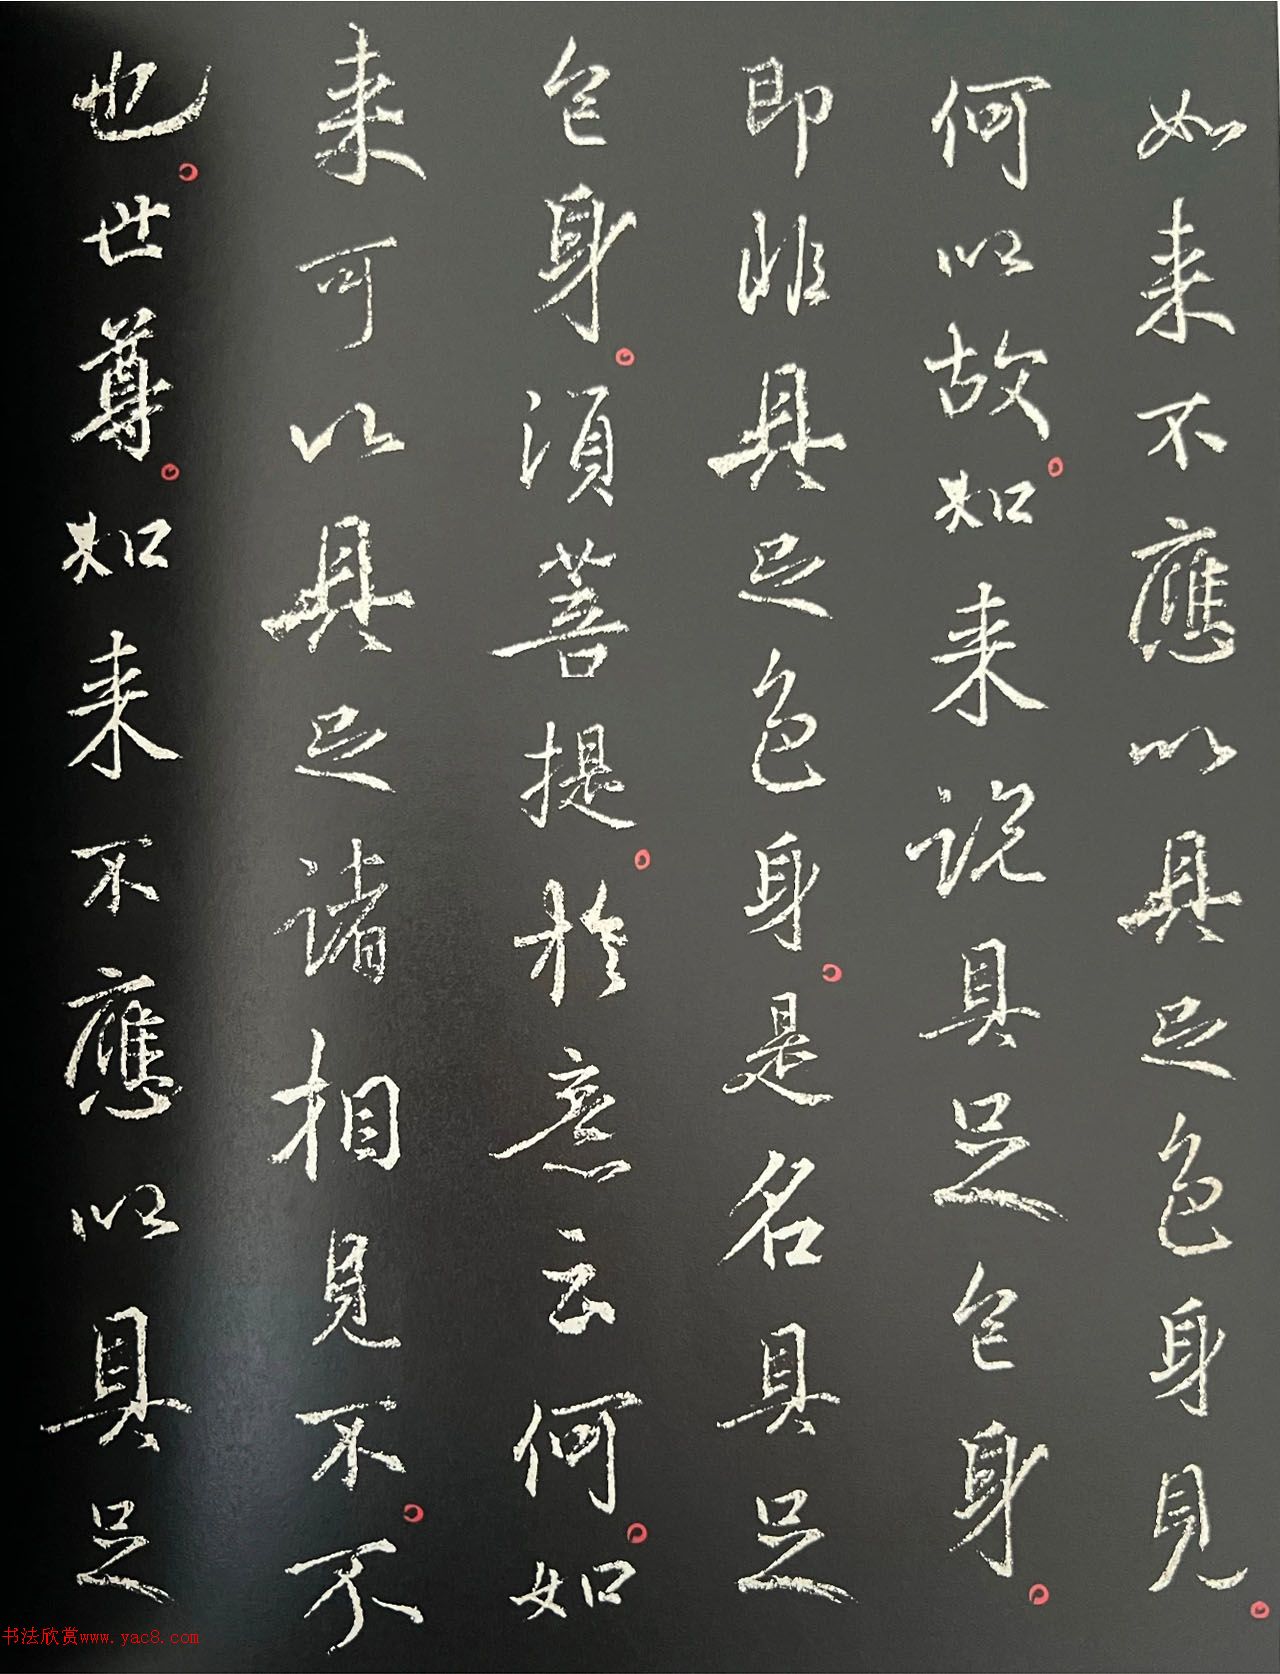 如来不應以具足色身見
何以故如来説具足色身
即非具足色身是名具足
色身須菩提於意云何如
来可以具足諸相見不不
也世尊如来不應以具足
书法欣赏www.yac8.com